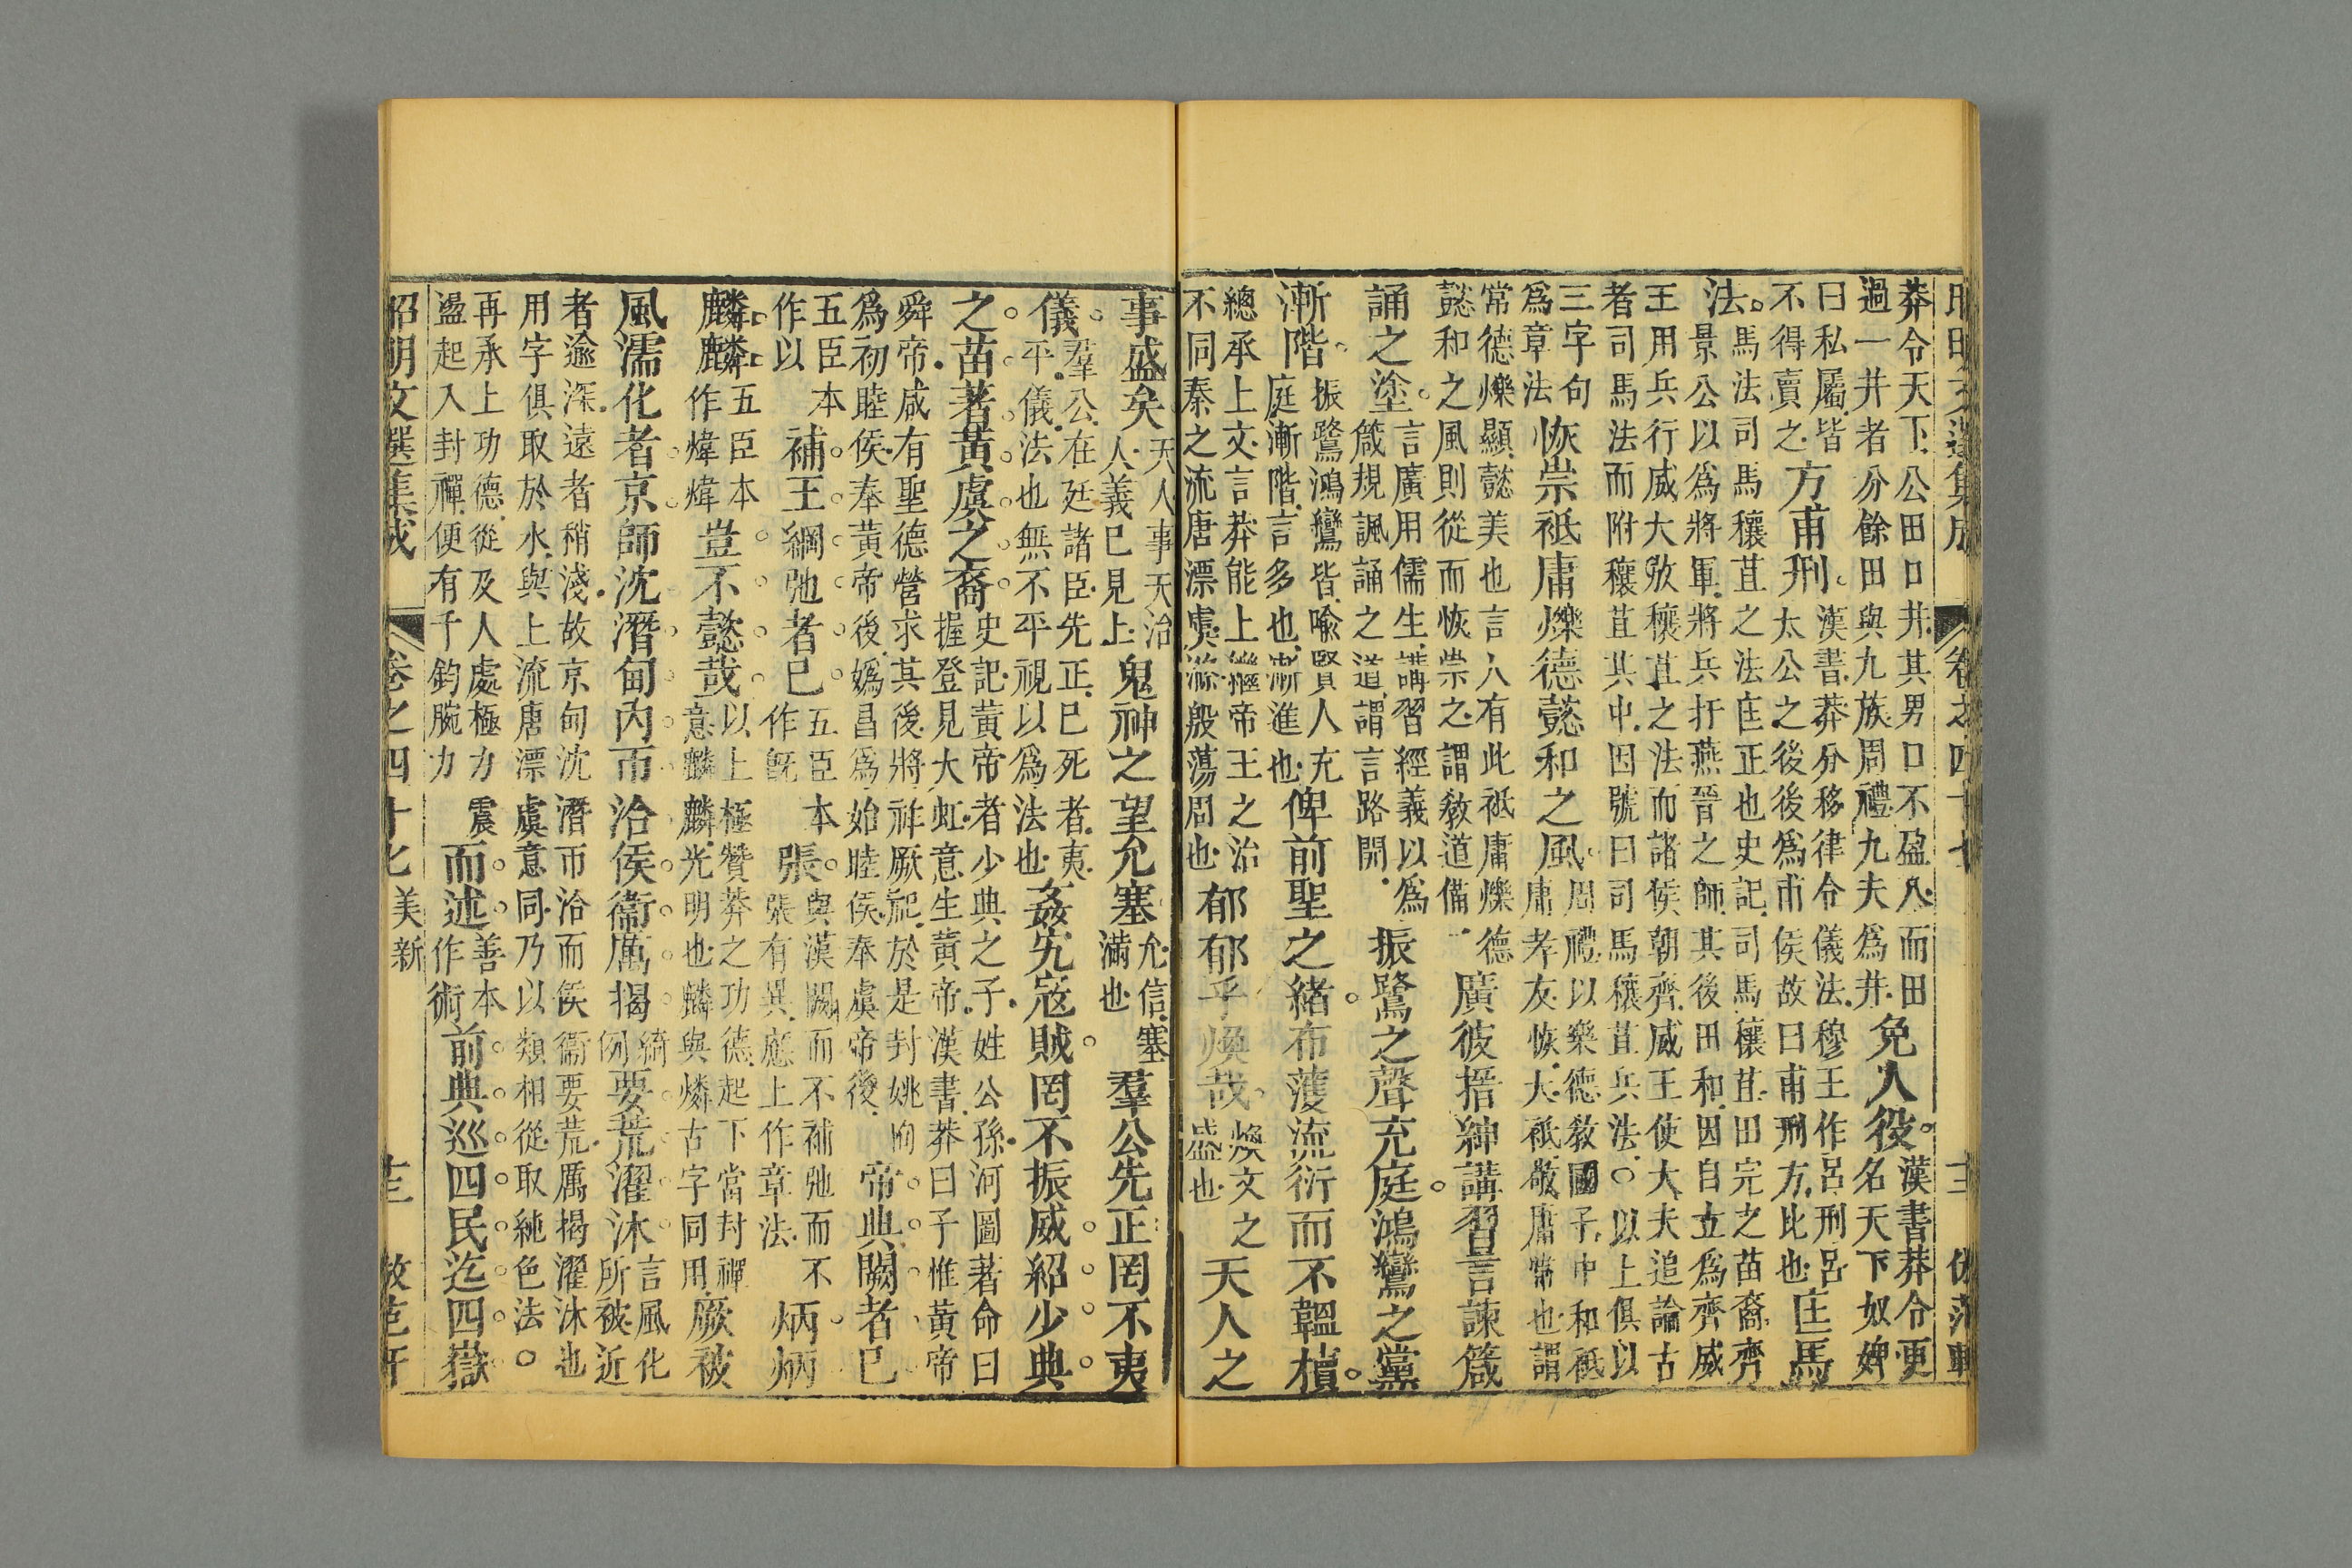 莽令天下公田口井其男口不盈八而田
過一井者分餘田與九族周禮九夫爲井免人役漢書莽令更名天下奴婢
曰私屬皆不得賣之方甫刑漢書莽分移律令儀法穆王作呂刑呂
太公之後後爲甫侯故曰甫刑方比也匡馬
法馬法司馬穰苴之法匡正也史記司馬穰苴田完之苗裔齊
景公以爲將軍將兵扞燕晉之師其後田和因自立爲齊威
王用兵行威大放穰苴之法而諸侯朝齊威王使大夫追論古
者司馬法而附穰苴其中因號曰司馬穰苴兵法○以上俱以
三字句爲章法恢崇祗庸爍德懿和之風周禮以樂德敎國子中和祗
庸孝友恢大祗敬庸常也謂
常德爍顯懿美也言人有此祗庸爍德
懿和之風則從而恢崇之謂敎道備廣彼搢紳講習言諫箴
誦之塗言廣用儒生講習經義以爲
箴規諷誦之道謂言路開振鷺之聲充庭鴻鸞之黨
漸階振鷺鴻鸞皆喻賢人充
庭漸階言多也漸進也俾前聖之緒布濩流衍而不韞櫝
總承上文言莽能上繼帝王之治
不同秦之流唐漂虞滌殷蕩周也郁郁乎煥哉煥文之盛也天人之
事盛矣天人事天治
人義已見上鬼神之望允塞允信塞滿也羣公先正罔不夷
儀羣公在廷諸臣先正已死者夷
平儀法也無不平視以爲法也姦宄寇賊罔不振威紹少典
之苗著黃虞之裔史記黃帝者少典之子姓公孫河圖著命曰
握登見大虹意生黃帝漢書莽曰予惟黃帝
舜帝咸有聖德營求其後將祚厥祀於是封姚恂
爲初睦侯奉黃帝後嬀昌爲始睦侯奉虞帝後帝典闕者已
五臣本作以補王綱弛者已五臣本作旣張與漢闕而不補弛而不
張有異應上作章法炳炳
麟麟五臣本作煒煒豈不懿哉以上極贊莽之功德起下當封禪
意麟麟光明也麟與燐古字同用厥被
風濡化者京師沈潛甸內帀洽侯衞厲揭綺例要荒濯沐言風化所被近
者逾深遠者稍淺故京甸沈潛帀洽而侯衞要荒厲揭濯沐也
用字俱取於水與上流唐漂虞意同乃以類相從取純色法○
再承上功德從及人處極力
盪起入封禪便有千鈞腕力震而述善本作術前典巡四民迄四嶽
昭明文選集成 卷之四十七 美新